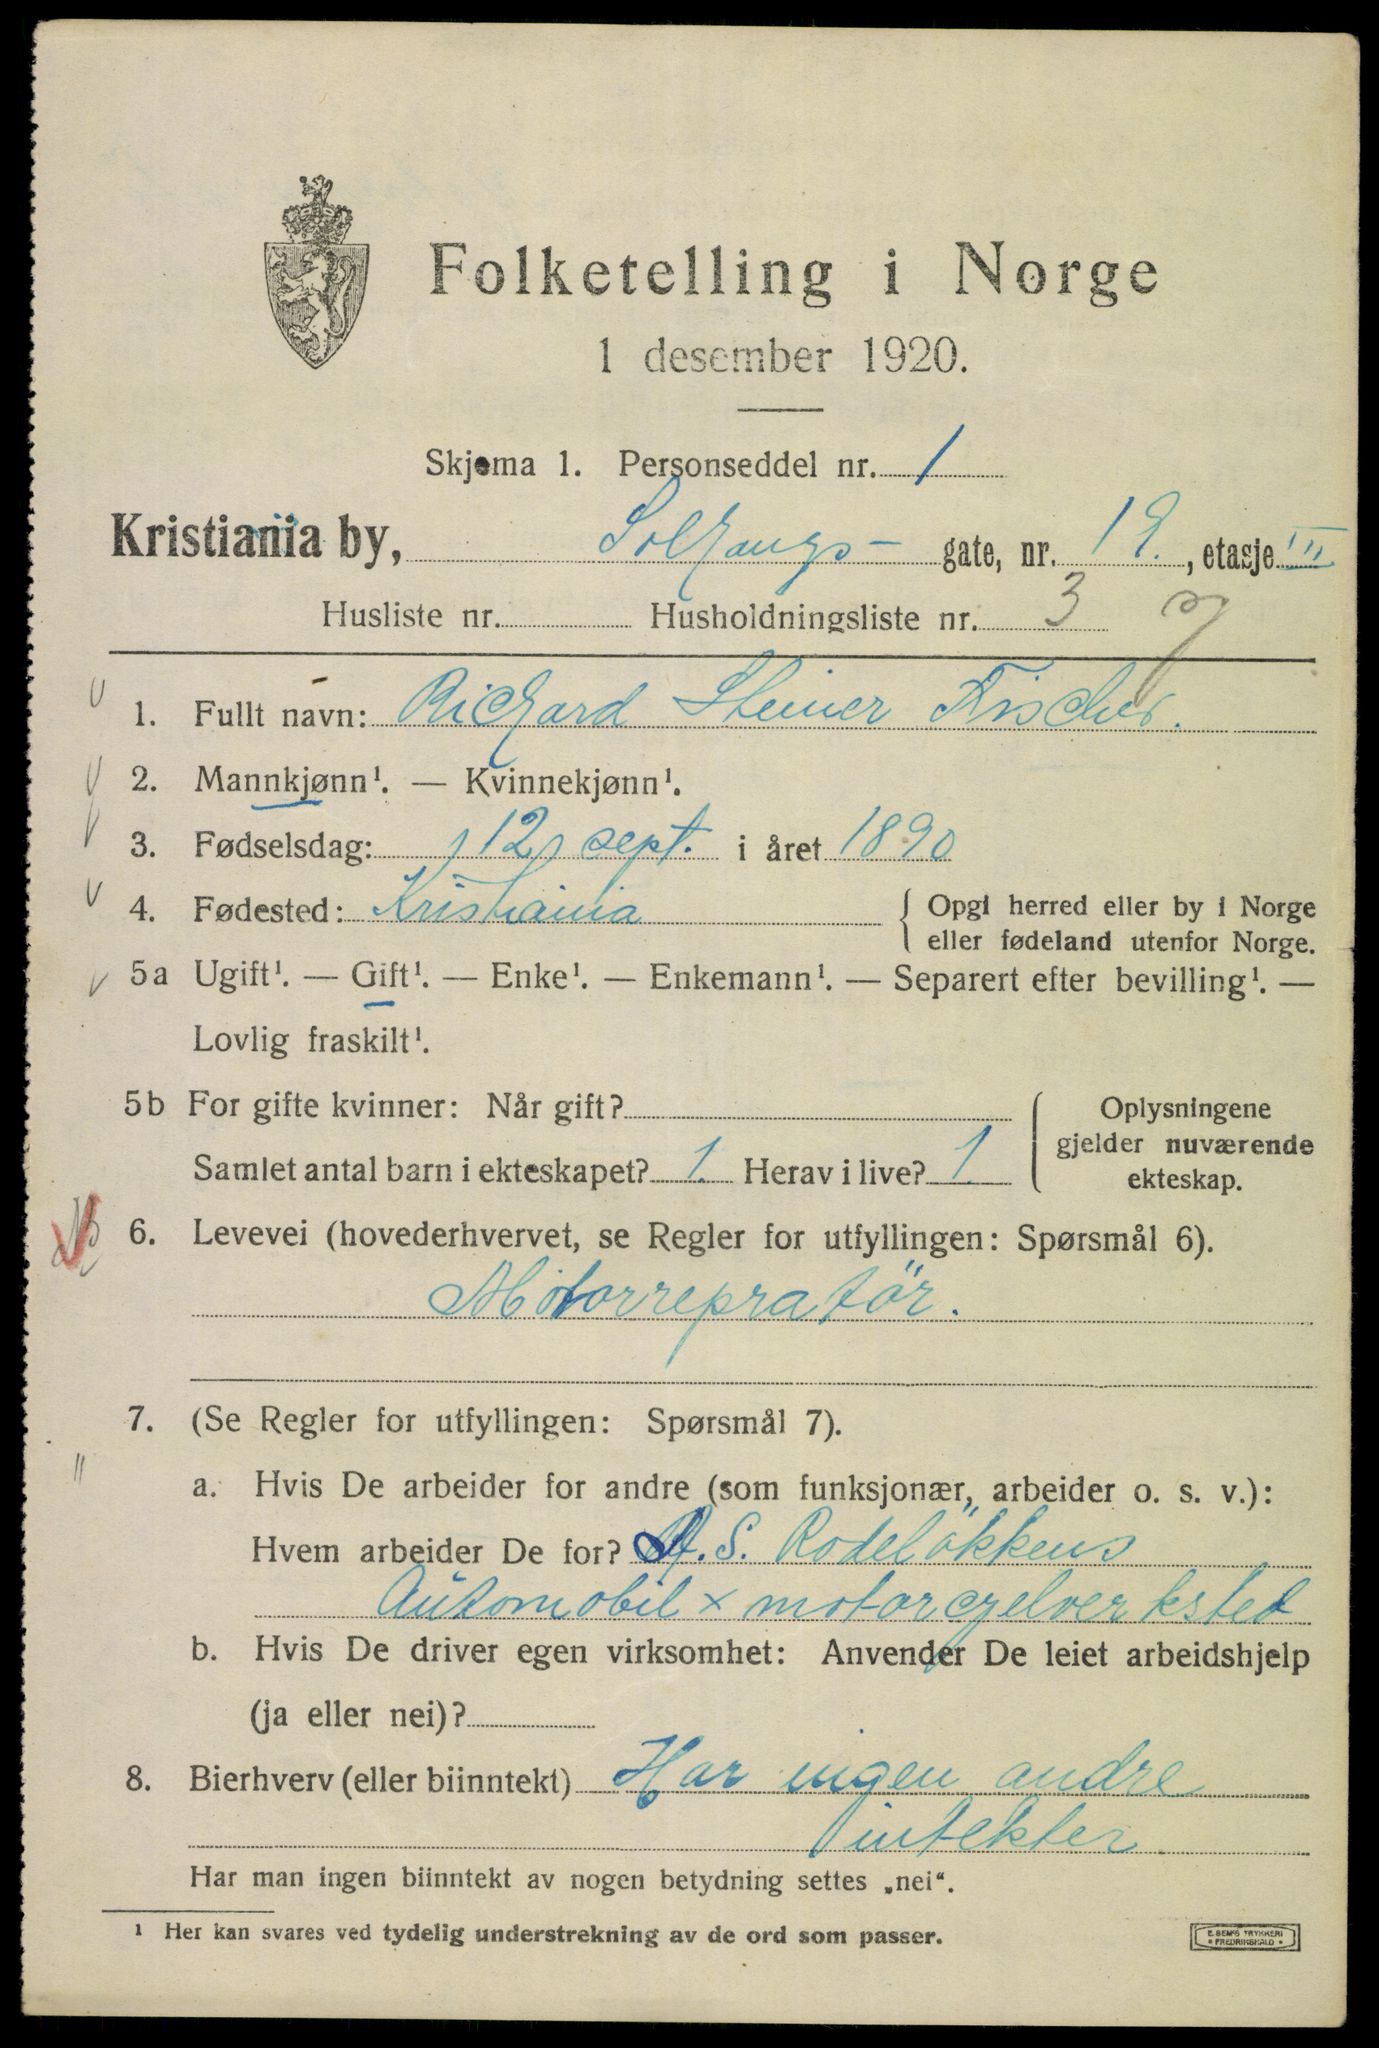 Folketelling i Norge
1 desember 1920.
Skjema 1. Personseddel nr. 1
Kristiania by, Solhaugs- gate, nr. 19., etasje III
Husliste nr. Husholdningsliste nr. 3
1. Fullt navn: Richard Steiner Fischer.
2. Mannkjønn¹. — Kvinnekjønn¹.
3. Fødselsdag: 12 sept. i året 1890
4. Fødested: Kristiania
{ Opgi herred eller by i Norge
eller fødeland utenfor Norge.
5a Ugift¹. — Gift¹. — Enke¹. — Enkemann¹. — Separert efter bevilling¹. —
Lovlig fraskilt¹.
5b For gifte kvinner: Når gift?
Samlet antal barn i ekteskapet? 1. Herav i live? 1.
{ Oplysningene
gjelder nuværende
ekteskap.
6. Levevei (hovederhvervet, se Regler for utfyllingen: Spørsmål 6).
Motorrepratör.
7. (Se Regler for utfyllingen: Spørsmål 7).
a. Hvis De arbeider for andre (som funksjonær, arbeider o. s. v.):
Hvem arbeider De for? A.S. Rodelökkens
Automobil x motorcyelverksted
b. Hvis De driver egen virksomhet: Anvender De leiet arbeidshjelp
(ja eller nei)?
8. Bierhverv (eller biinntekt) Har ingen andre
intekter
Har man ingen biinntekt av nogen betydning settes „nei“.
¹ Her kan svares ved tydelig understrekning av de ord som passer.
E. SEM'S TRYKKERI
• FREDRIKSHALD •